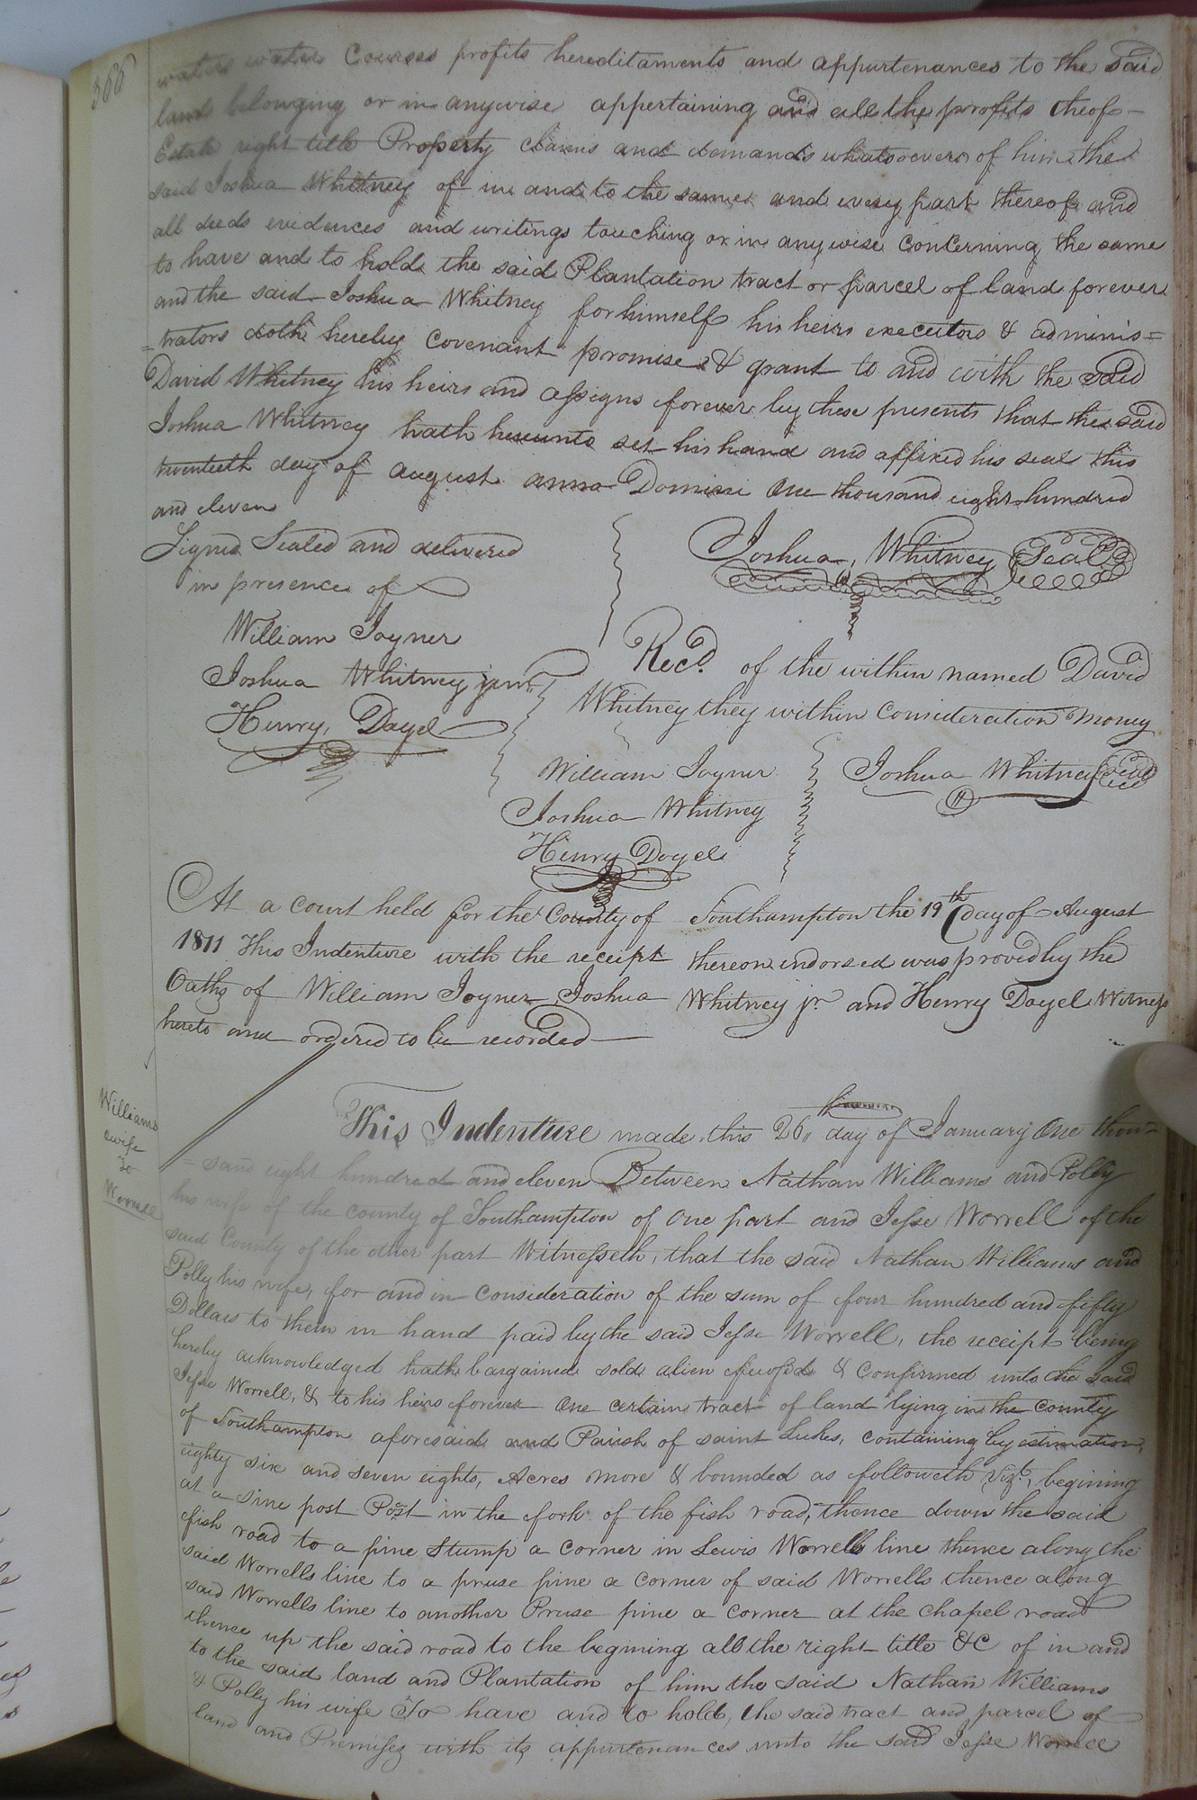 366
waters water Courses profits hereditaments and appurtenances to the said
land belonging or in anywise appertaining and all the profits theof
Estate right title Property claims and demands whatsoever of him the
said Joshua Whitney of in and to the same and every part thereof and
all deeds evidences and writings touching or in any wise concerning the same
to have and to hold the said Plantation tract or parcel of land forever
and the said Joshua Whitney for himself his heirs executors & adminis=
=trators doth hereby covenant promise & grant to and with the said
David Whitney his heirs and assigns forever by these presents that the said
Joshua Whitney hath hereunto set his hand and affixed his seal this
twentieth day of august anno Domini One thousand eight hundred
and eleven
Signed Sealed and delivered
in presence of
Joshua Whitney Seal
William Joyner
Joshua Whitney junr
Henry Doyel
Recd. of the within named David
Whitney they within consideration money
William Joyner
Joshua Whitney
Henry Doyel
Joshua Whitney Seal
At a court held for the County of Southampton the 19th day of August
1811 This Indenture with the receipt thereon indorsed was provid by the
Oaths of William Joyner Joshua Whitney jr. and Henry Doyel Witness
hereto and ordered to be recorded
Williams
wife
To
Worrell
This Indenture made this 26 day of January One thou=
=sand eight hundred and eleven Between Nathan Williams and Polly
his wife of the county of Southampton of One part and Jesse Worrell of the
said County of the other part Witnesseth, that the said Nathan Williams and
Polly his wife, for and in consideration of the sum of four hundred and fifty
Dollars to them in hand paid by the said Jesse Worrell, the receipt being
hereby acknowledged hath bargained sold alien & Confirmed unto the said
Jesse Worrell, & to his heirs forever One certain tract of land lying in the County
of Southampton aforesaid and Parish of saint Lukes, containing by estimation,
eighty six and seven eights, Acres more & bounded as followeth Vizt, begining
at a sine post Post in the fork of the fish road, thence down the said
fish road to a pine Stump a corner in Lewis Worrells line thence along the
said Worrells line to a pruse pine a corner of said Worrells thence along
said Worrells line to another Pruse pine a corner at the chapel road
thence up the said road to the begining all the right title &C of in and
to the said land and Plantation of him the said Nathan Williams
& Polly his wife To have and to hold, the said tract and parcel of
land and Premises with its appurtenances unto the said Jesse Worrell